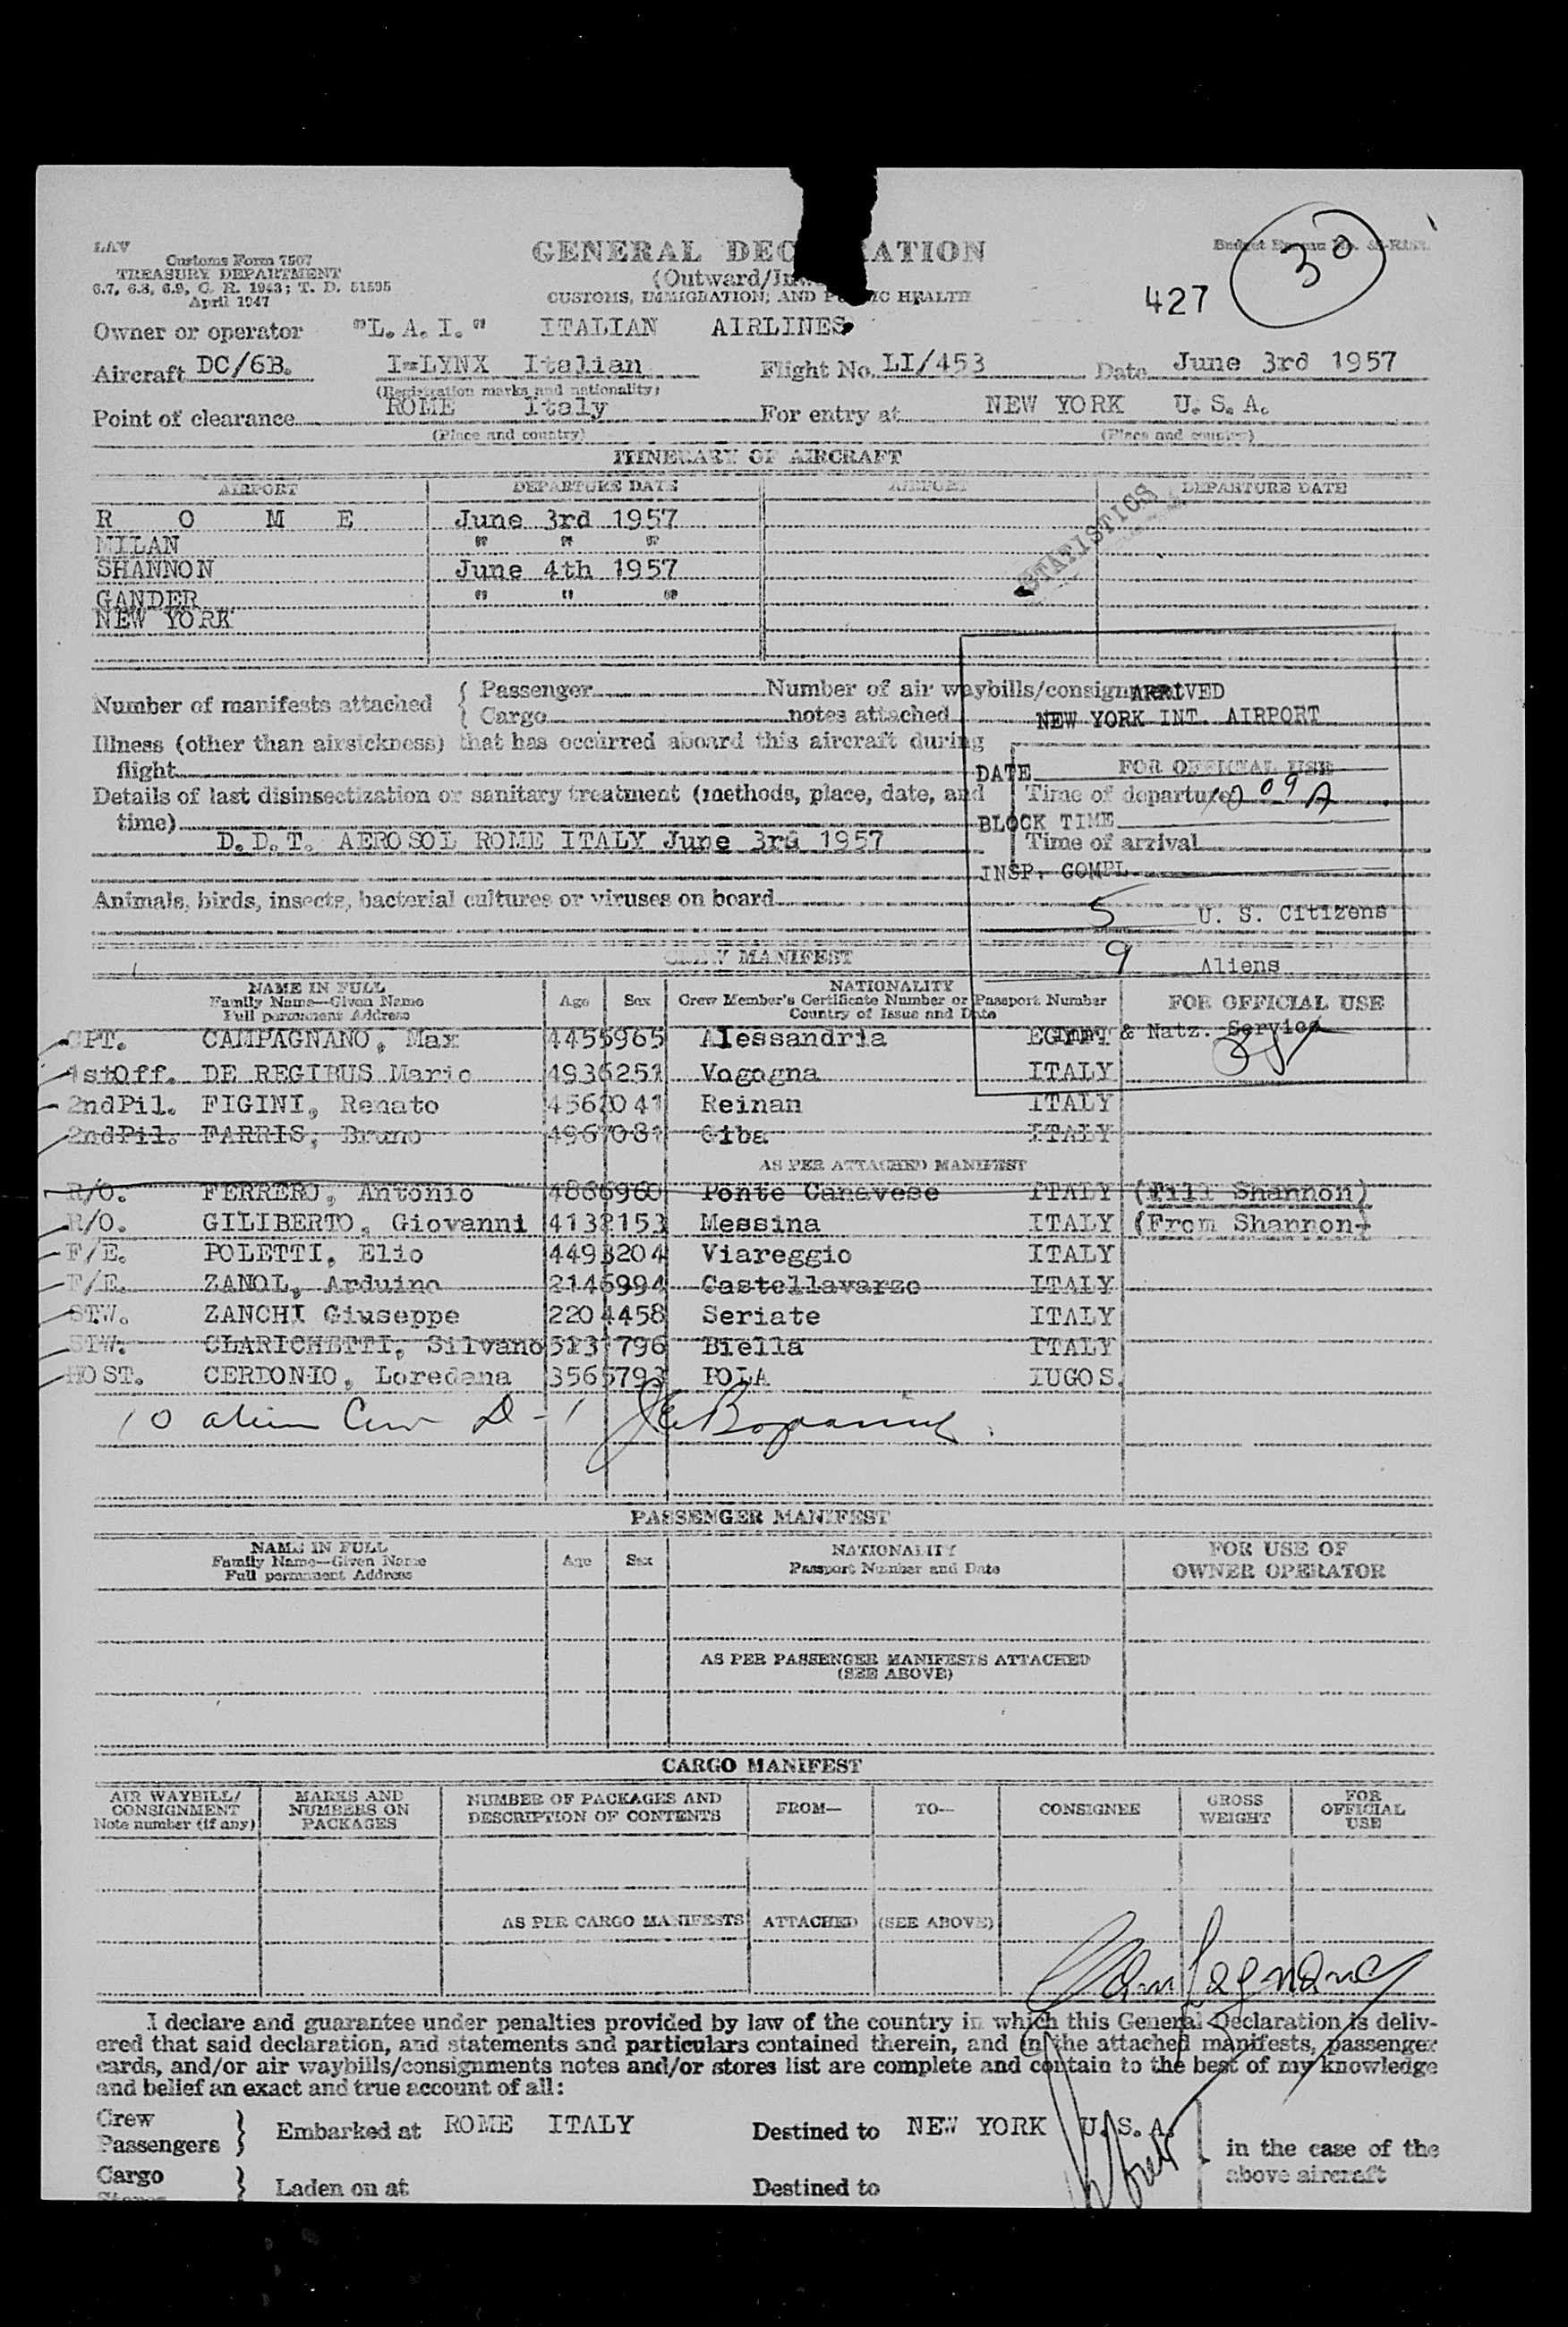 LAV
Customs Form 7507
TREASURY DEPARTMENT
6.7, 6.8, 6.9, C. R. 1943; T. D. 51595
April 1947
GENERAL DEC ATION
(Outward/
CUSTOMS, IMMIGRATION, AND P IC HEALTH
Budget Bureau No.
30
427
Owner or operator "L. A. I." ITALIAN AIRLINES.
Aircraft DC/6B. I-LYNX Italian Flight No. LI/453 Date June 3rd 1957
(Registration marks and nationality)
Point of clearance ROME Italy For entry at NEW YORK U. S. A.
(Place and country) (Place and country)
ITINERARY OF AIRCRAFT
AIRPORT DEPARTURE DATE AIRPORT DEPARTURE DATE
STATISTICS
R O M E June 3rd 1957
MILAN " " "
SHANNON June 4th 1957
GANDER " " "
NEW YORK
Number of manifests attached { Passenger Number of air waybills/consignment
Cargo notes attached
ARRIVED
NEW YORK INT. AIRPORT
Illness (other than airsickness) that has occurred aboard this aircraft during
flight
DATE
FOR OFFICIAL USE
Details of last disinsectization or sanitary treatment (methods, place, date, and
time)
Time of departure 10 09 A
BLOCK TIME
D. D. T. AEROSOL ROME ITALY June 3rd 1957
Time of arrival
INSP. COMPL.
Animals, birds, insects, bacterial cultures or viruses on board
5 U. S. Citizens
9 Aliens
CREW MANIFEST
NAME IN FULL
Family Name—Given Name
Full permanent Address
Age Sex
NATIONALITY
Crew Member's Certificate Number or Passport Number
Country of Issue and Date
FOR OFFICIAL USE
& Natz. Service
CPT. CAMPAGNANO, Max 4455965 Alessandria EGYPT
1stOff. DE REGIBUS Mario 4936251 Vogogna ITALY
2ndPil. FIGINI, Renato 4562041 Reinan ITALY
2ndPil. FARRIS, Bruno 4967081 Giba ITALY
AS PER ATTACHED MANIFEST
R/O. FERRERO, Antonio 4866960 Ponte Canavese ITALY (Till Shannon)
R/O. GILIBERTO, Giovanni 4132153 Messina ITALY (From Shannon)
F/E. POLETTI, Elio 4493204 Viareggio ITALY
F/E. ZANOL, Arduino 2146994 Castellavarzo ITALY
STW. ZANCHI Giuseppe 2204458 Seriate ITALY
STW. CLARICHETTI, Silvano 5131796 Biella ITALY
HOST. CERDONIO, Loredana 3565793 POLA IUGOS.
10 alien Crew D-1
PASSENGER MANIFEST
NAME IN FULL
Family Name—Given Name
Full permanent Address
Age Sex
NATIONALITY
Passport Number and Date
FOR USE OF
OWNER OPERATOR
AS PER PASSENGER MANIFESTS ATTACHED
(SEE ABOVE)
CARGO MANIFEST
AIR WAYBILL/
CONSIGNMENT
Note number (if any)
MARKS AND
NUMBERS ON
PACKAGES
NUMBER OF PACKAGES AND
DESCRIPTION OF CONTENTS
FROM— TO— CONSIGNEE
GROSS
WEIGHT
FOR
OFFICIAL
USE
AS PER CARGO MANIFESTS ATTACHED (SEE ABOVE)
Campagnano
I declare and guarantee under penalties provided by law of the country in which this General Declaration is deliv-
ered that said declaration, and statements and particulars contained therein, and in the attached manifests, passenger
cards, and/or air waybills/consignments notes and/or stores list are complete and contain to the best of my knowledge
and belief an exact and true account of all:
Crew
Passengers } Embarked at ROME ITALY Destined to NEW YORK U. S. A.
in the case of the
above aircraft
Cargo
Stores } Laden on at Destined to